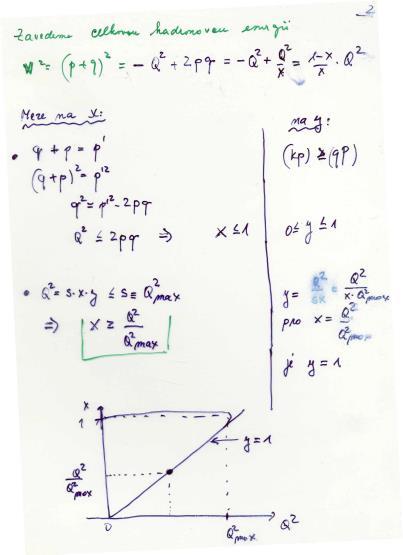 2
Zavedeme celkovou hadronovou energii
W² = (p+q)² = -Q² + 2pq = -Q² + Q²/x = (1-x)/x · Q²
Meze na x:
• q + p = p'
(q+p)² = p'²
q² = p'² - 2pq
Q² ≤ 2pq ⇒ x ≤ 1
• Q² = s·x·y ≤ s ≡ Q²max
⇒ x ≥ Q²/Q²max
na y:
(kp) ≥ (qp)
0 ≤ y ≤ 1
y = Q²/sx = Q²/(x·Q²max)
pro x = Q²/Q²max
je y = 1
x
1
y = 1
Q²/Q²max
0
Q²max
Q²